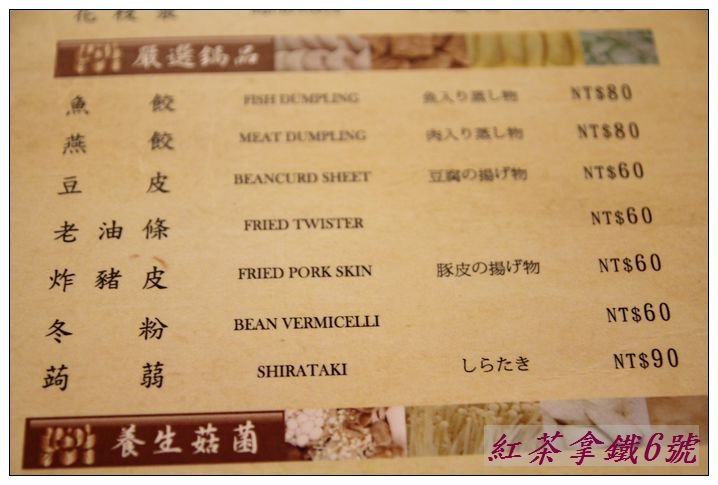 嚴選鍋品
魚餃 FISH DUMPLING 魚入り蒸し物 NT$80
燕餃 MEAT DUMPLING 肉入り蒸し物 NT$80
豆皮 BEANCURD SHEET 豆腐の揚げ物 NT$60
老油條 FRIED TWISTER NT$60
炸豬皮 FRIED PORK SKIN 豚皮の揚げ物 NT$60
冬粉 BEAN VERMICELLI NT$60
蒟蒻 SHIRATAKI しらたき NT$90
養生菇菌
紅茶拿鐵6號